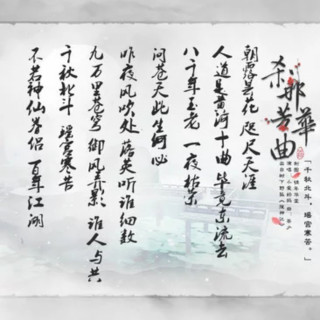 刹那芳華曲
「千秋北斗，瑶宫寒苦。」
朝露昙花 咫尺天涯
人道是黄河十曲 毕竟东流去
八千年玉老 一夜枯荣
问苍天此生何必
昨夜风吹处 落英听谁细数
九万里苍穹 御风弄影 谁人与共
千秋北斗 瑶宫寒苦
不若神仙眷侣 百年江湖